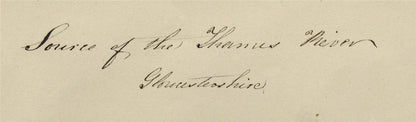 Source of the Thames River
Gloucestershire.